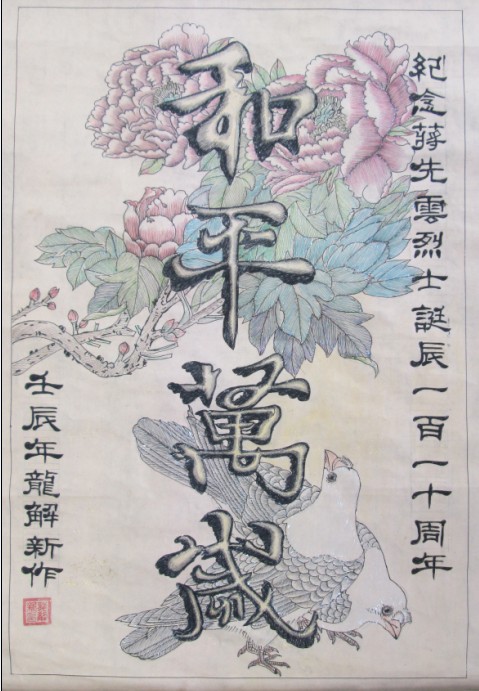 紀念蔣先雲烈士誕辰一百一十周年
和平萬歲
壬辰年龍解新作